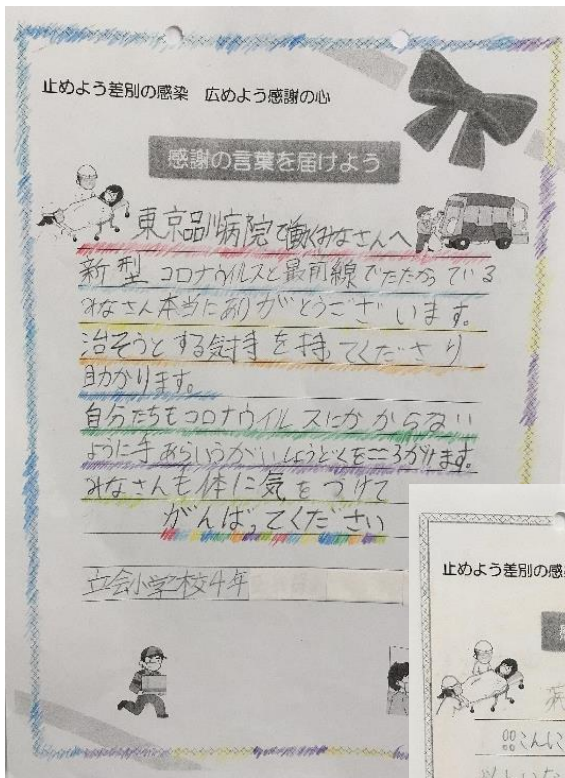 止めよう差別の感染 広めよう感謝の心
感謝の言葉を届けよう
東京品川病院で働くみなさんへ
新型コロナウイルスと最前線でたたかっている
みなさん本当にありがとうございます。
治そうとする気持を持ってくださり
助かります。
自分たちもコロナウイルスにかからない
ように手あらいうがいしょうどくを心ろがけます。
みなさんも体に気をつけて
がんばってください
立会小学校4年
止めよう差別の感
こんに